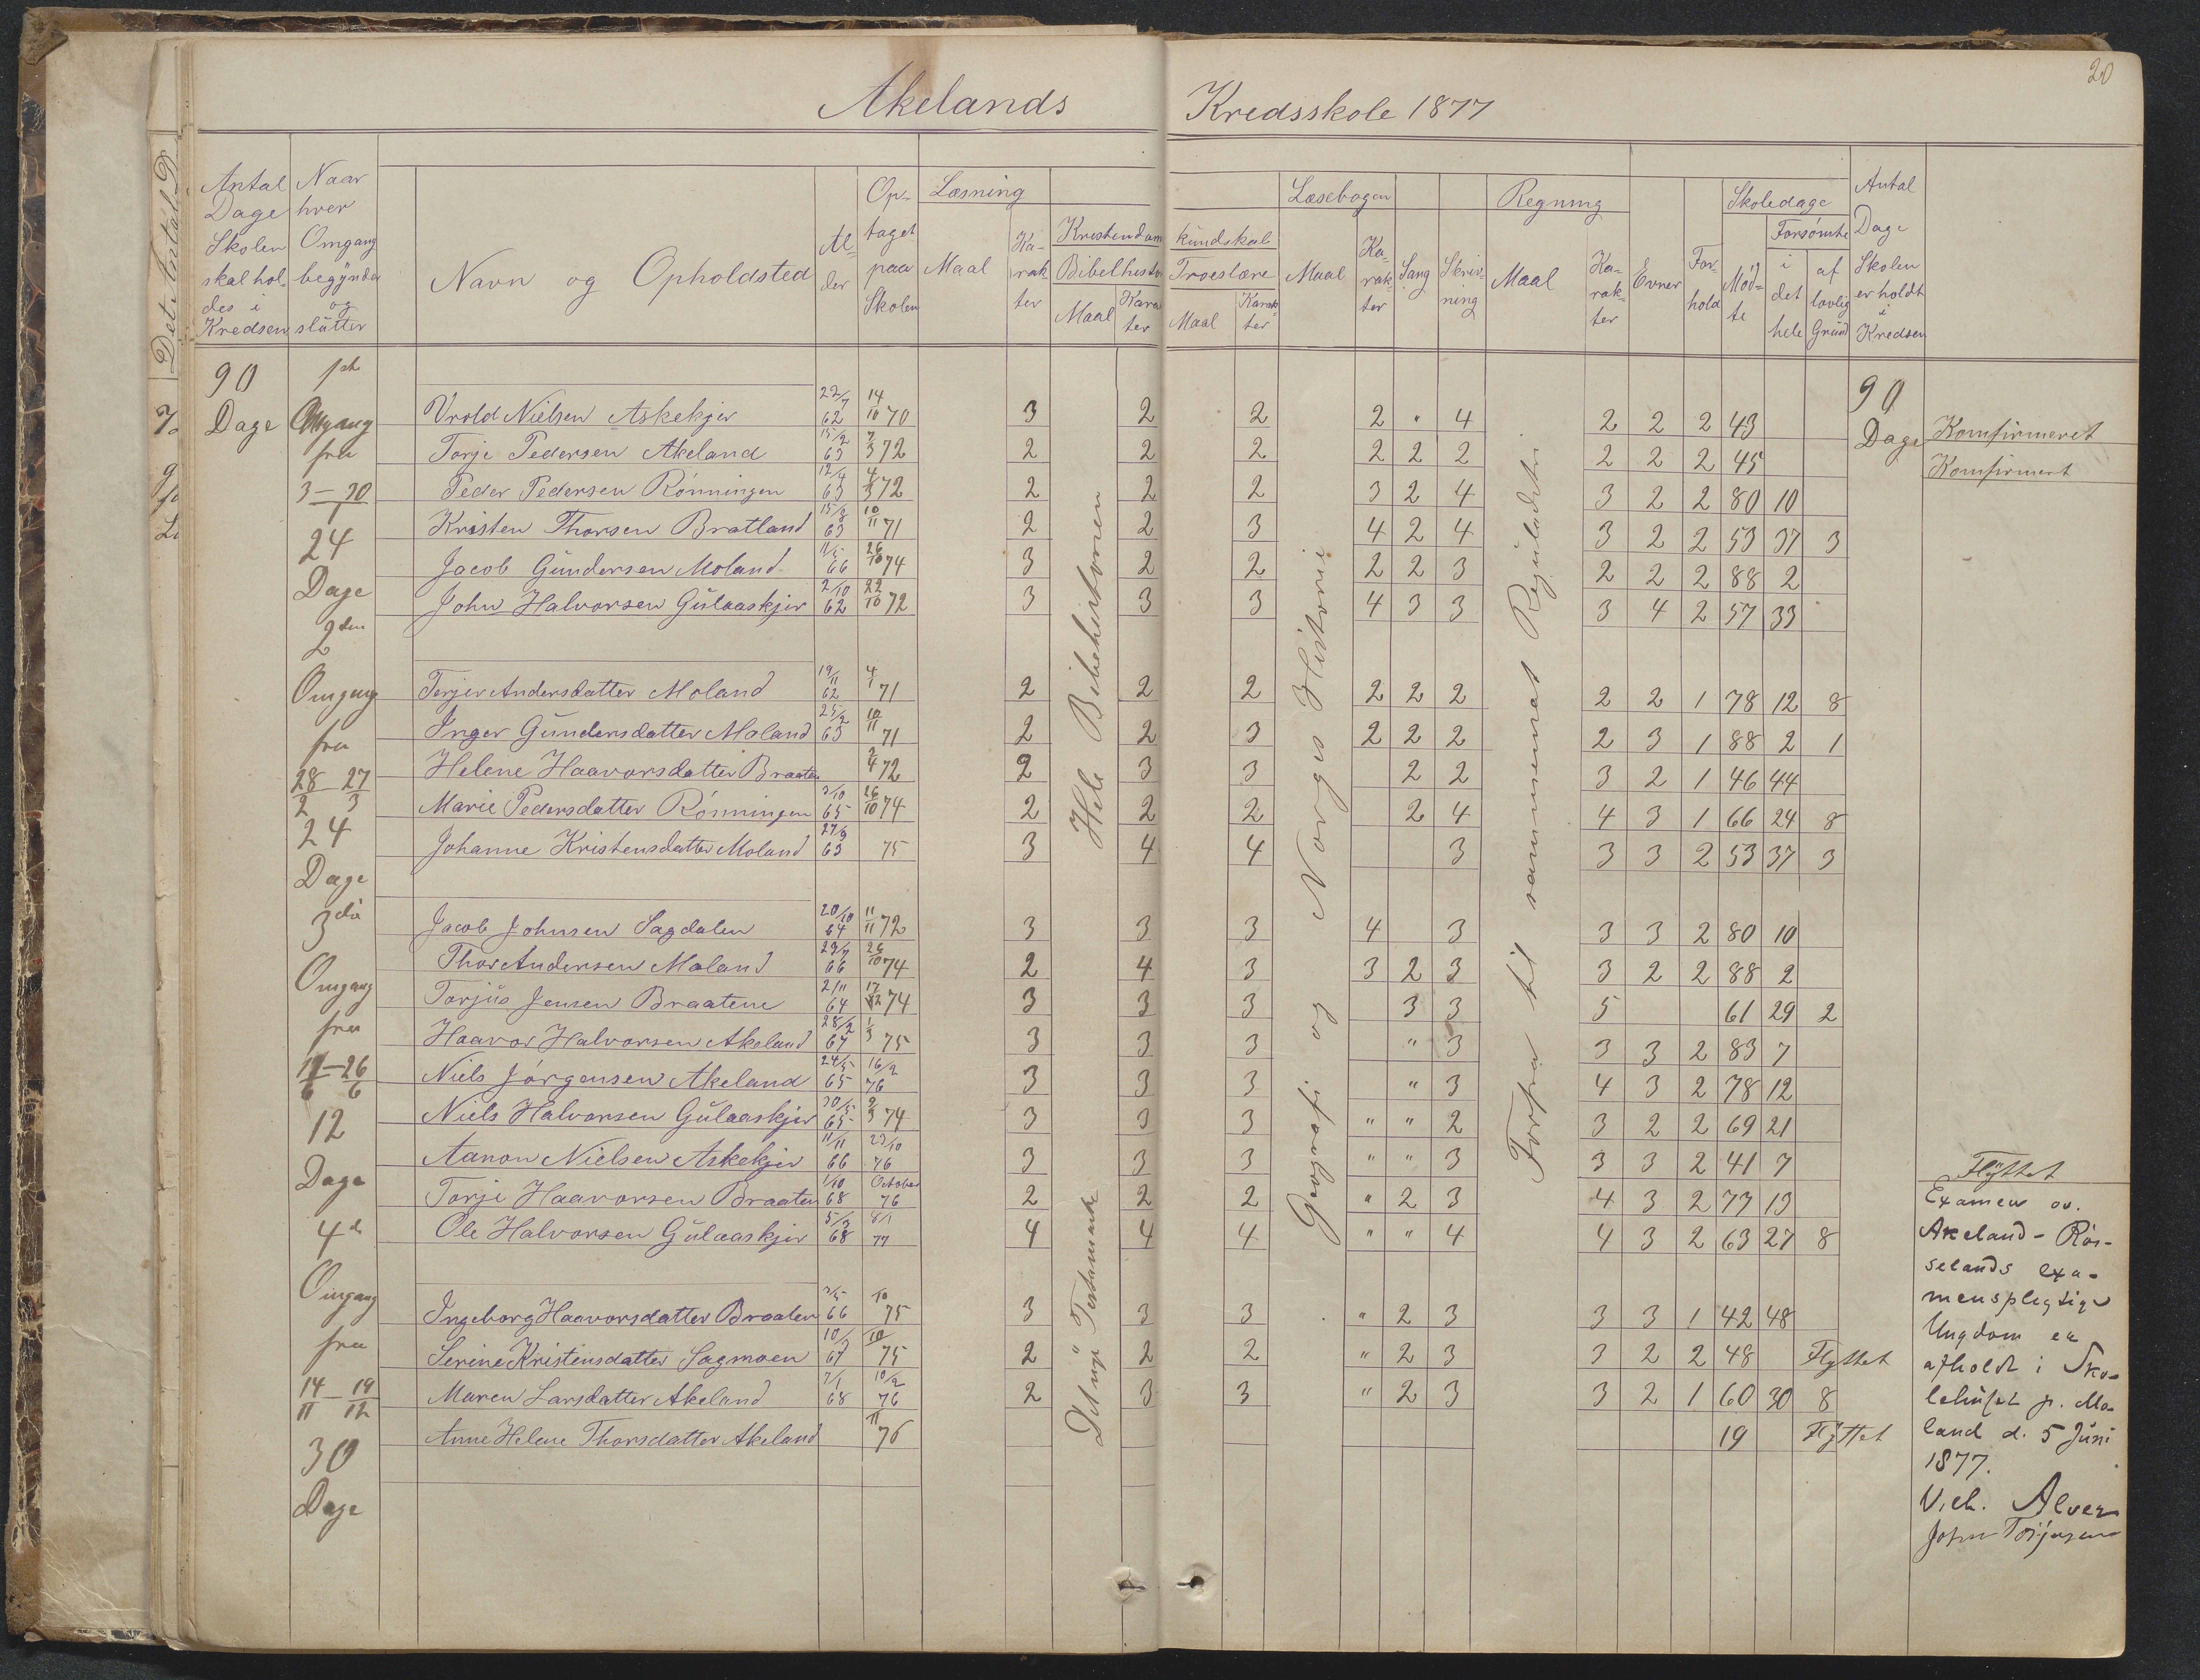 20
Akelands Kredsskole 1877
Det Antal D
Antal Dage Skolen skal holdes i Kredsen
Naar hver Omgang begynder og slutter
Navn og Opholdsted
Alder
Optaget paa Skolen
Læsning
Maal
Karakter
Kristendomskundskab
Bibelhistorie
Maal
Karakter
Troeslære
Maal
Karakter
Læsebogen
Maal
Karakter
Sang
Skrivning
Regning
Maal
Karakter
Evner
Forhold
Skoledage
Mødte
Forsømte
i det hele
af lovlig Grund
Antal Dage Skolen er holdt i Kredsen
90 Dage
1ste Omgang fra 3 – 30/1 24 Dage
2den Omgang fra 28/2 – 27/3 24 Dage
3die Omgang fra 11/6 – 26/6 12 Dage
4de Omgang fra 14/11 – 19/12 30 Dage
Vrold Nielsen Askekjer 22/7 62 14/10 70 3 2 2 2 " 4 2 2 2 43
Torje Pedersen Akeland 15/2 63 7/3 72 2 2 2 2 2 2 2 2 2 45
Peder Pedersen Rønningen 12/4 63 4/3 72 2 2 2 3 2 4 3 2 2 80 10
Kristen Thorsen Bratland 15/8 63 10/11 71 2 2 3 4 2 4 3 2 2 53 37 3
Jacob Gundersen Moland 11/5 66 26/10 74 3 2 2 2 2 3 2 2 2 88 2
John Halvorsen Gulaaskjer 2/10 62 22/10 72 3 3 3 4 3 3 3 4 2 57 33
Terjer Andersdatter Moland 19/11 62 4/1 71 2 2 2 2 2 2 2 2 1 78 12 8
Inger Gundersdatter Moland 25/2 63 10/11 71 2 2 3 2 2 2 2 3 1 88 2 1
Helene Haavorsdatter Braaten 2/4 72 2 3 3 2 2 3 2 1 46 44
Marie Pedersdatter Rønningen 3/10 65 26/10 74 2 2 2 2 4 4 3 1 66 24 8
Johanne Kristensdatter Moland 27/9 63 75 3 4 4 3 3 3 2 53 37 3
Jacob Johnsen Sagdalen 20/10 64 11/11 72 3 3 3 4 3 3 3 2 80 10
Thor Andersen Moland 29/7 66 26/10 74 2 4 3 3 2 3 3 2 2 88 2
Torjus Jensen Braatene 2/11 64 17/12 74 3 3 3 3 3 5 61 29 2
Haavor Halvorsen Akeland 28/2 67 1/3 75 3 3 3 " 3 3 3 2 83 7
Niels Jörgensen Akeland 24/5 65 16/2 76 3 3 3 " 3 4 3 2 78 12
Niels Halvorsen Gulaaskjer 30/5 65 2/3 74 3 3 3 " " 2 3 2 2 69 21
Aanon Nielsen Askekjer 11/11 66 23/10 76 3 3 3 " " 3 3 3 2 41 7 Flÿttet
Torje Haavorsen Braaten 1/10 68 October 76 2 2 2 " 2 3 4 3 2 77 13
Ole Halvorsen Gulaaskjer 5/3 68 8/1 77 4 4 4 " " 4 4 3 2 63 27 8
Ingeborg Haavorsdatter Braaten 3/5 66 10 75 3 3 3 " 2 3 3 3 1 42 48
Serine Kristensdatter Sagmoen 10/ 67 10 75 2 2 2 " 2 3 3 2 2 48 Flyttet
Maren Larsdatter Akeland 7/1 68 10/2 76 2 3 3 " 2 3 3 2 1 60 30 8
Anne Helene Thorsdatter Akeland 11 76 19 Flÿttet
Hele Bibelhistorien
Det nye Testamente
Geografi og Norges Historie
Forfra til sammensat Reguladetri
90 Dage
Komfirmeret
Komfirmert
Examen ov.
Akeland - Rös-
selands exa-
menspligtige
Ungdom er
afholdt i Sko-
lehuset p. Mo-
land d. 5 Juni
1877.
Alver
John Torjusen